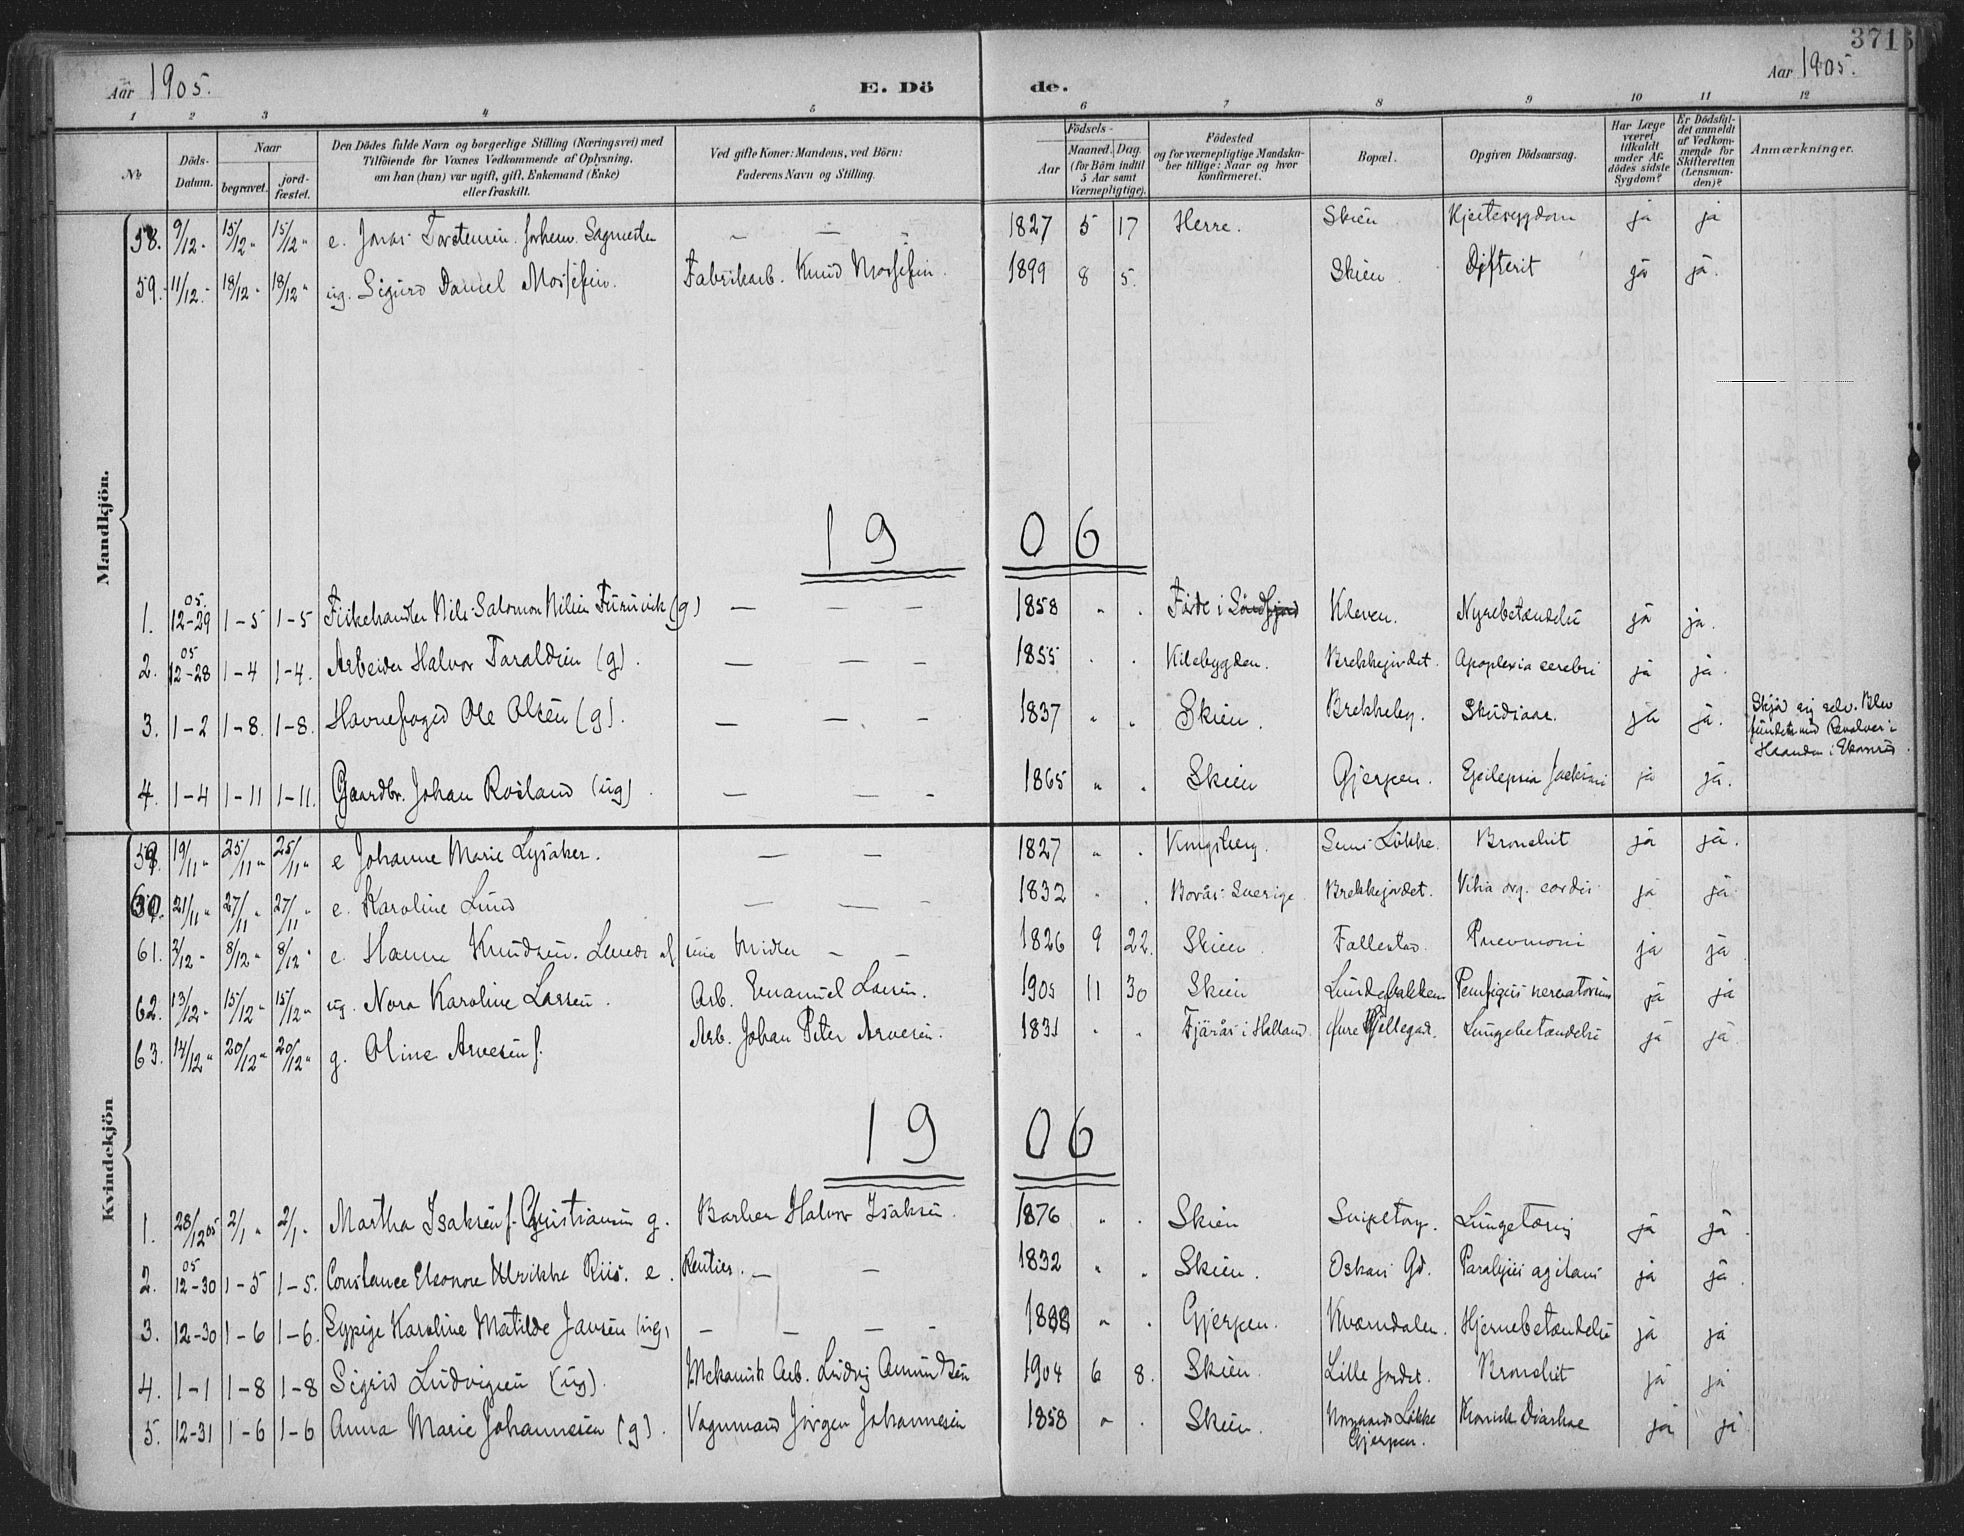 3716
Aar 1905.
E. Döde.
Aar 1905.
1 2 3 4 5 6 7 8 9 10 11 12
No
Döds-Datum.
Naar
begravet.
jord-fæstet.
Den Dödes fulde Navn og borgerlige Stilling (Næringsvei) med
Tilföiende for Voxnes Vedkommende af Oplysning,
om han (hun) var ugift, gift, Enkemand (Enke)
eller fraskilt.
Ved gifte Koner: Mandens, ved Börn:
Faderens Navn og Stilling.
Födsels-
Aar
Maaned. Dag.
(for Börn indtil
5 Aar samt
Værnepligtige).
Födested
og for værnepligtige Mandska-
ber tillige: Naar og hvor
konfirmeret.
Bopæl.
Opgiven Dödsaarsag.
Har Læge
været
tilkaldt
under Af-
dödes sidste
Sygdom?
Er Dödsfal-
det anmeldt
af Vedkom-
mende for
Skifteretten
(Lensman-
den)?
Anmærkninger.
Mandkjön.
58. 9/12 15/12 15/12 e. Jonas Torstensen. forhenv. Sagmester — — — 1827 5 17 Herre. Skien Hjertesygdom ja ja
59. 11/12 18/12 18/12 ug. Sigurd Daniel Mossefin. Fabrikarb. Knud Mossefin. 1899 8 5. Skien Difterit ja ja.
1906
1. 05. 12-29 1-5 1-5 Fiskehandler Nils Salomon Nilsen Furuvik (g) — — — 1858 " . Förde i Söndfjord Kleven. Nyrebetændelse ja ja.
2. 05 12-28 1-4 1-4. Arbeider Halvor Taraldsen (g). — — — 1855 . . Kilebygden. Brekkejordet. Apoplexia cerebri ja ja.
3. 1-2 1-8. 1-8. Havnefoged Ole Olsen (g). — — — 1837 " . Skien. Brekkeby. Skudsaar. ja ja. Skjöd sig selv. Blev
fundet med Revolver i
Haanden i
4. 1-4 1-11 1-11. Gaardbr. Johan Rosland (ug). — — - 1865 " . Skien Gjerpen. Epilepsia Jacksoni ja ja.
Kvindekjön
59. 19/11 " 25/11 " 25/11 " e Johanne Marie Lysaker. — — 1827 " . Kongsberg. Løkke. Bronchit ja ja.
60. 21/11 " 27/11 " 27/11 " e. Karoline Lund — — - 1832 . . Borås. Sverige. Brekkejordet. Vitia org. cordis ja ja
61. 3/12 8/12 " 8/12 " e. Hanne Knudsen. Levede af sine Midler - - 1826 9 22. Skien. Fallestad. Pnevmoni ja ja
62. 13/12 15/12 " 15/12 " ug. Nora Karoline Larsen. Arb. Emanuel Larsen. 1905 11 30 Skien Lundebakken Pemfigus neonatorum ja ja
63. 14/12 " 20/12 " 20/12 " g. Oline Arvesen f. Arb. Johan Peter Arvesen. 1831 . . Fjärås i Halland. Øvre Hjellegad. Lungebetændelse ja ja
1906
1. 28/12 05 2/1 " 2/1 " Martha Isaksen f. Christiansen g. Barber Halvor Isaksen. 1876 " . Skien Snipetorp. Lungetæring ja ja
2. 05 12-30 1-5 1-5. Constance Eleonore Ulrikke Riis. e. Rentier. — — 1832 " . Skien. Oskars Gd. Paralysis agitans ja ja.
3. 12-30 1-6 1-6. Sypige Karoline Matilde Jansen (ug) - - - - 1888 " . Gjerpen. Kværndalen. Hjernebetændelse ja ja
4. 1-1 1-8 1-8 Sigrid Ludvigsen (ug). Mekanisk Arb. Ludvig Amundsen 1904 6 8. Skien. Lille Jordet. Bronchit ja ja
5. 12-31 1-6 1-6 Anna Marie Johannesen (g). Vognmand Jörgen Johannesen 1858 " . Skien. Løkke
Gjerpen. Kronisk Diarhoe ja ja.